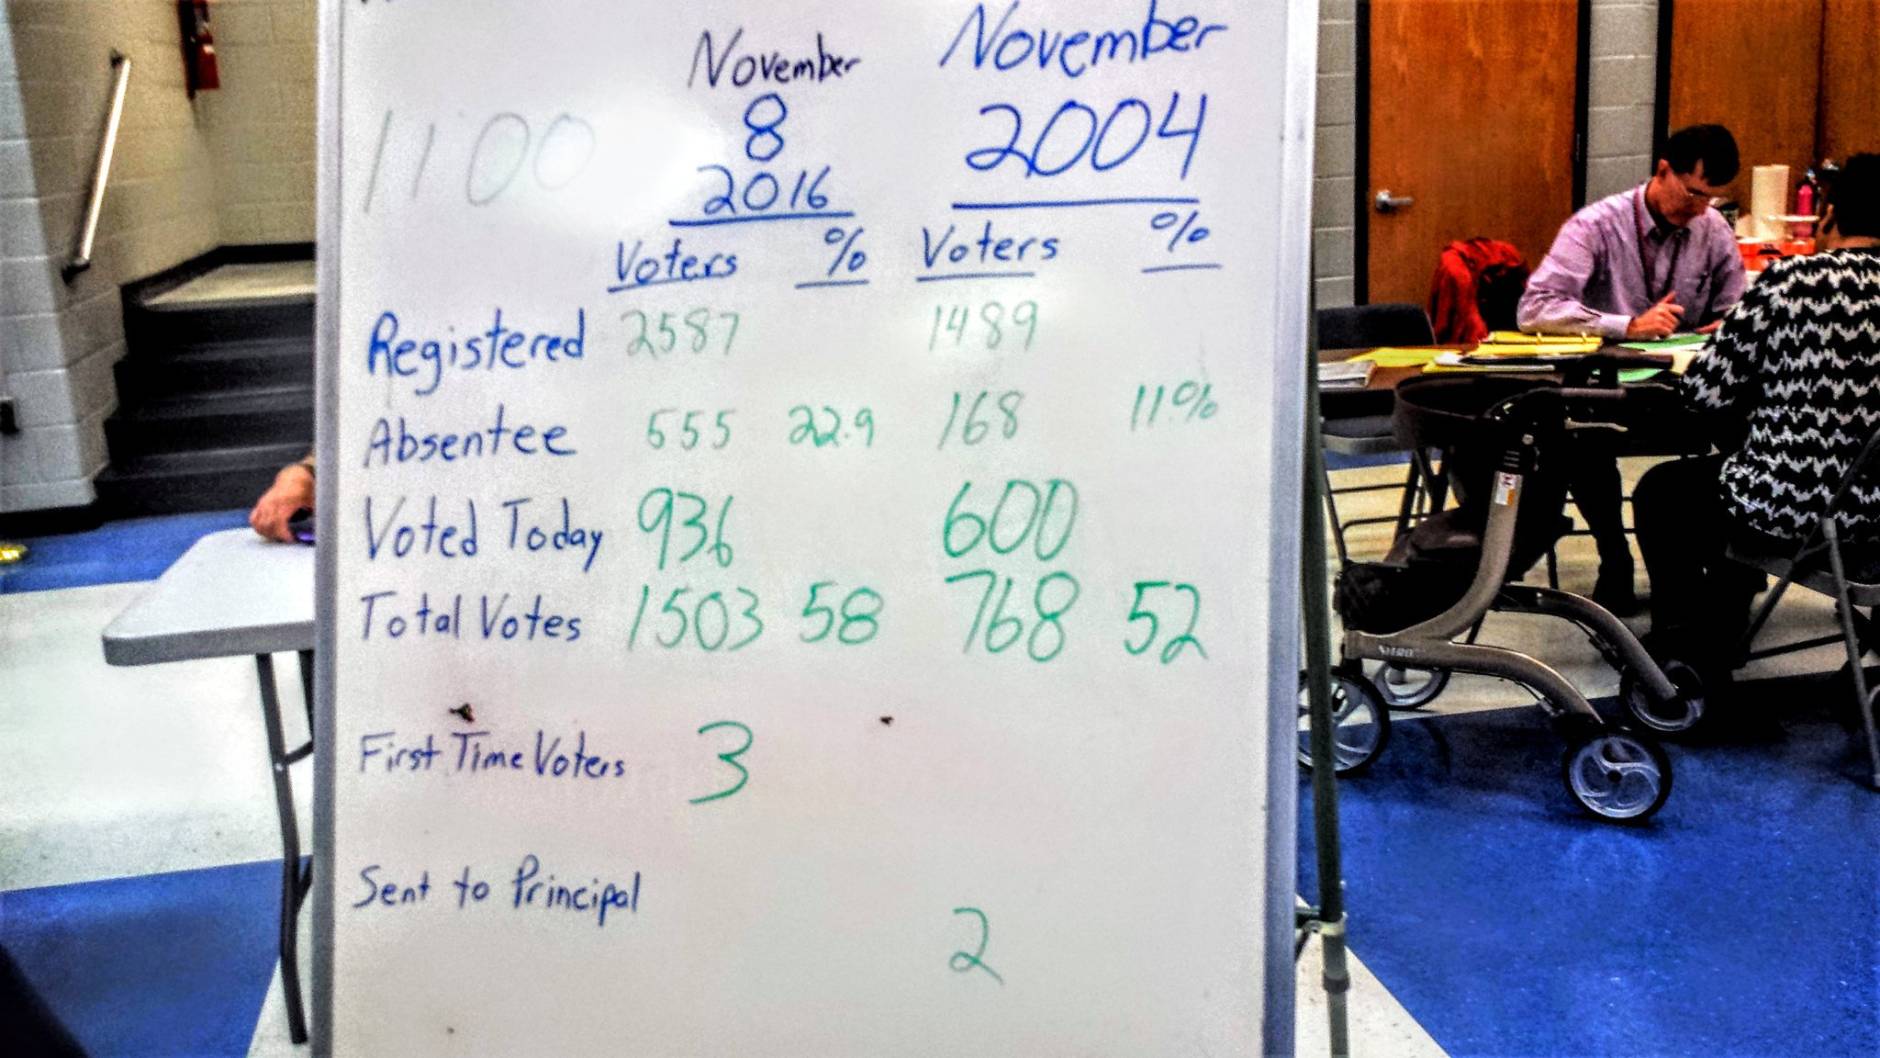 November November
8 2004
1100
2016
Voters % Voters %
Registered 2587 1489
Absentee 555 22.9 168 11%
Voted Today 936 600
Total Votes 1503 58 768 52
First Time Voters 3
Sent to Principal
2